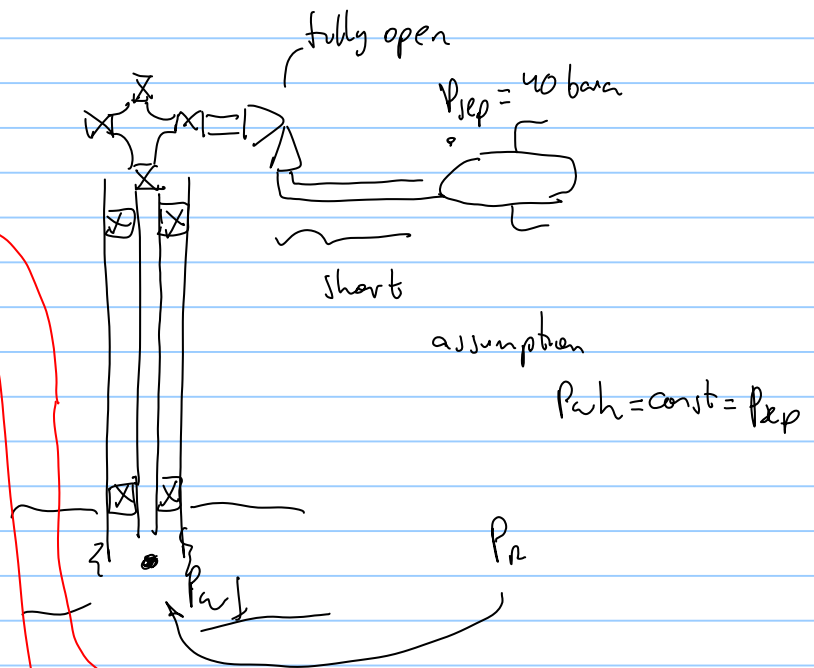 fully open
Psep = 40 bara
short
assumption
Pwh = const = Psep
PR
Pwf